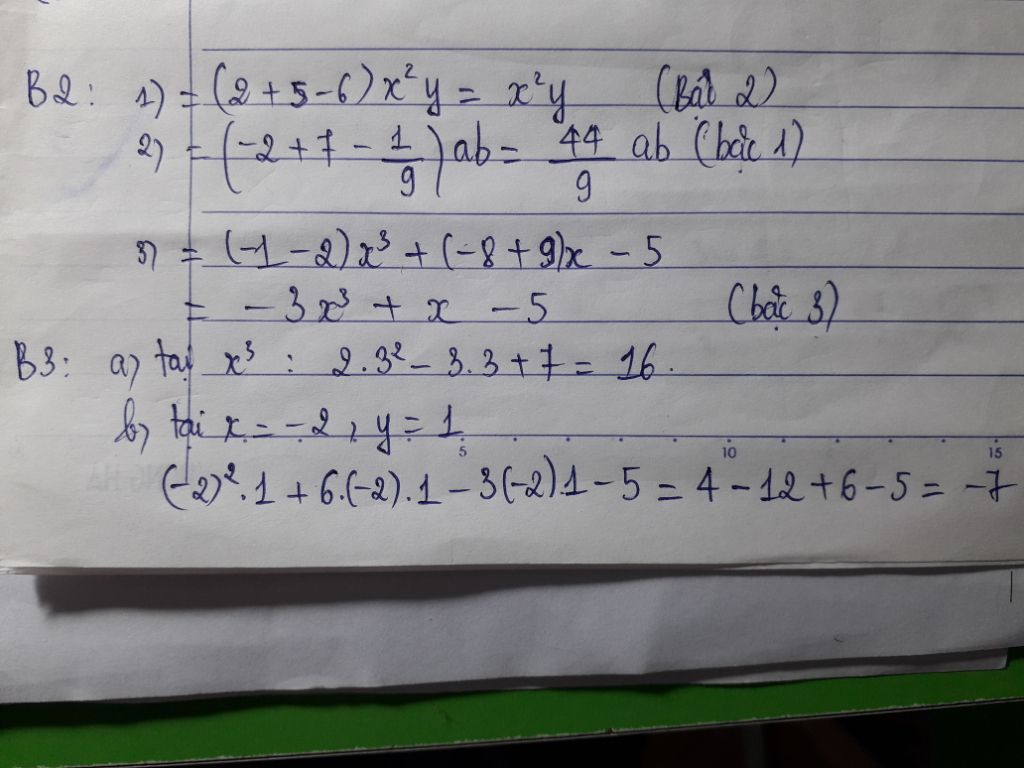 B2: 1) = (2+5-6)x²y = x²y (Bậc 2)
2) = (-2+7-1/9)ab = 44/9 ab (bậc 1)
3) = (-1-2)x³ + (-8+9)x - 5
= -3x³ + x - 5 (bậc 3)
B3: a) tại x³ : 2.3² - 3.3 + 7 = 16.
b) tại x = -2, y = 1
5 10 15
(-2)².1 + 6.(-2).1 - 3(-2).1 - 5 = 4 - 12 + 6 - 5 = -7